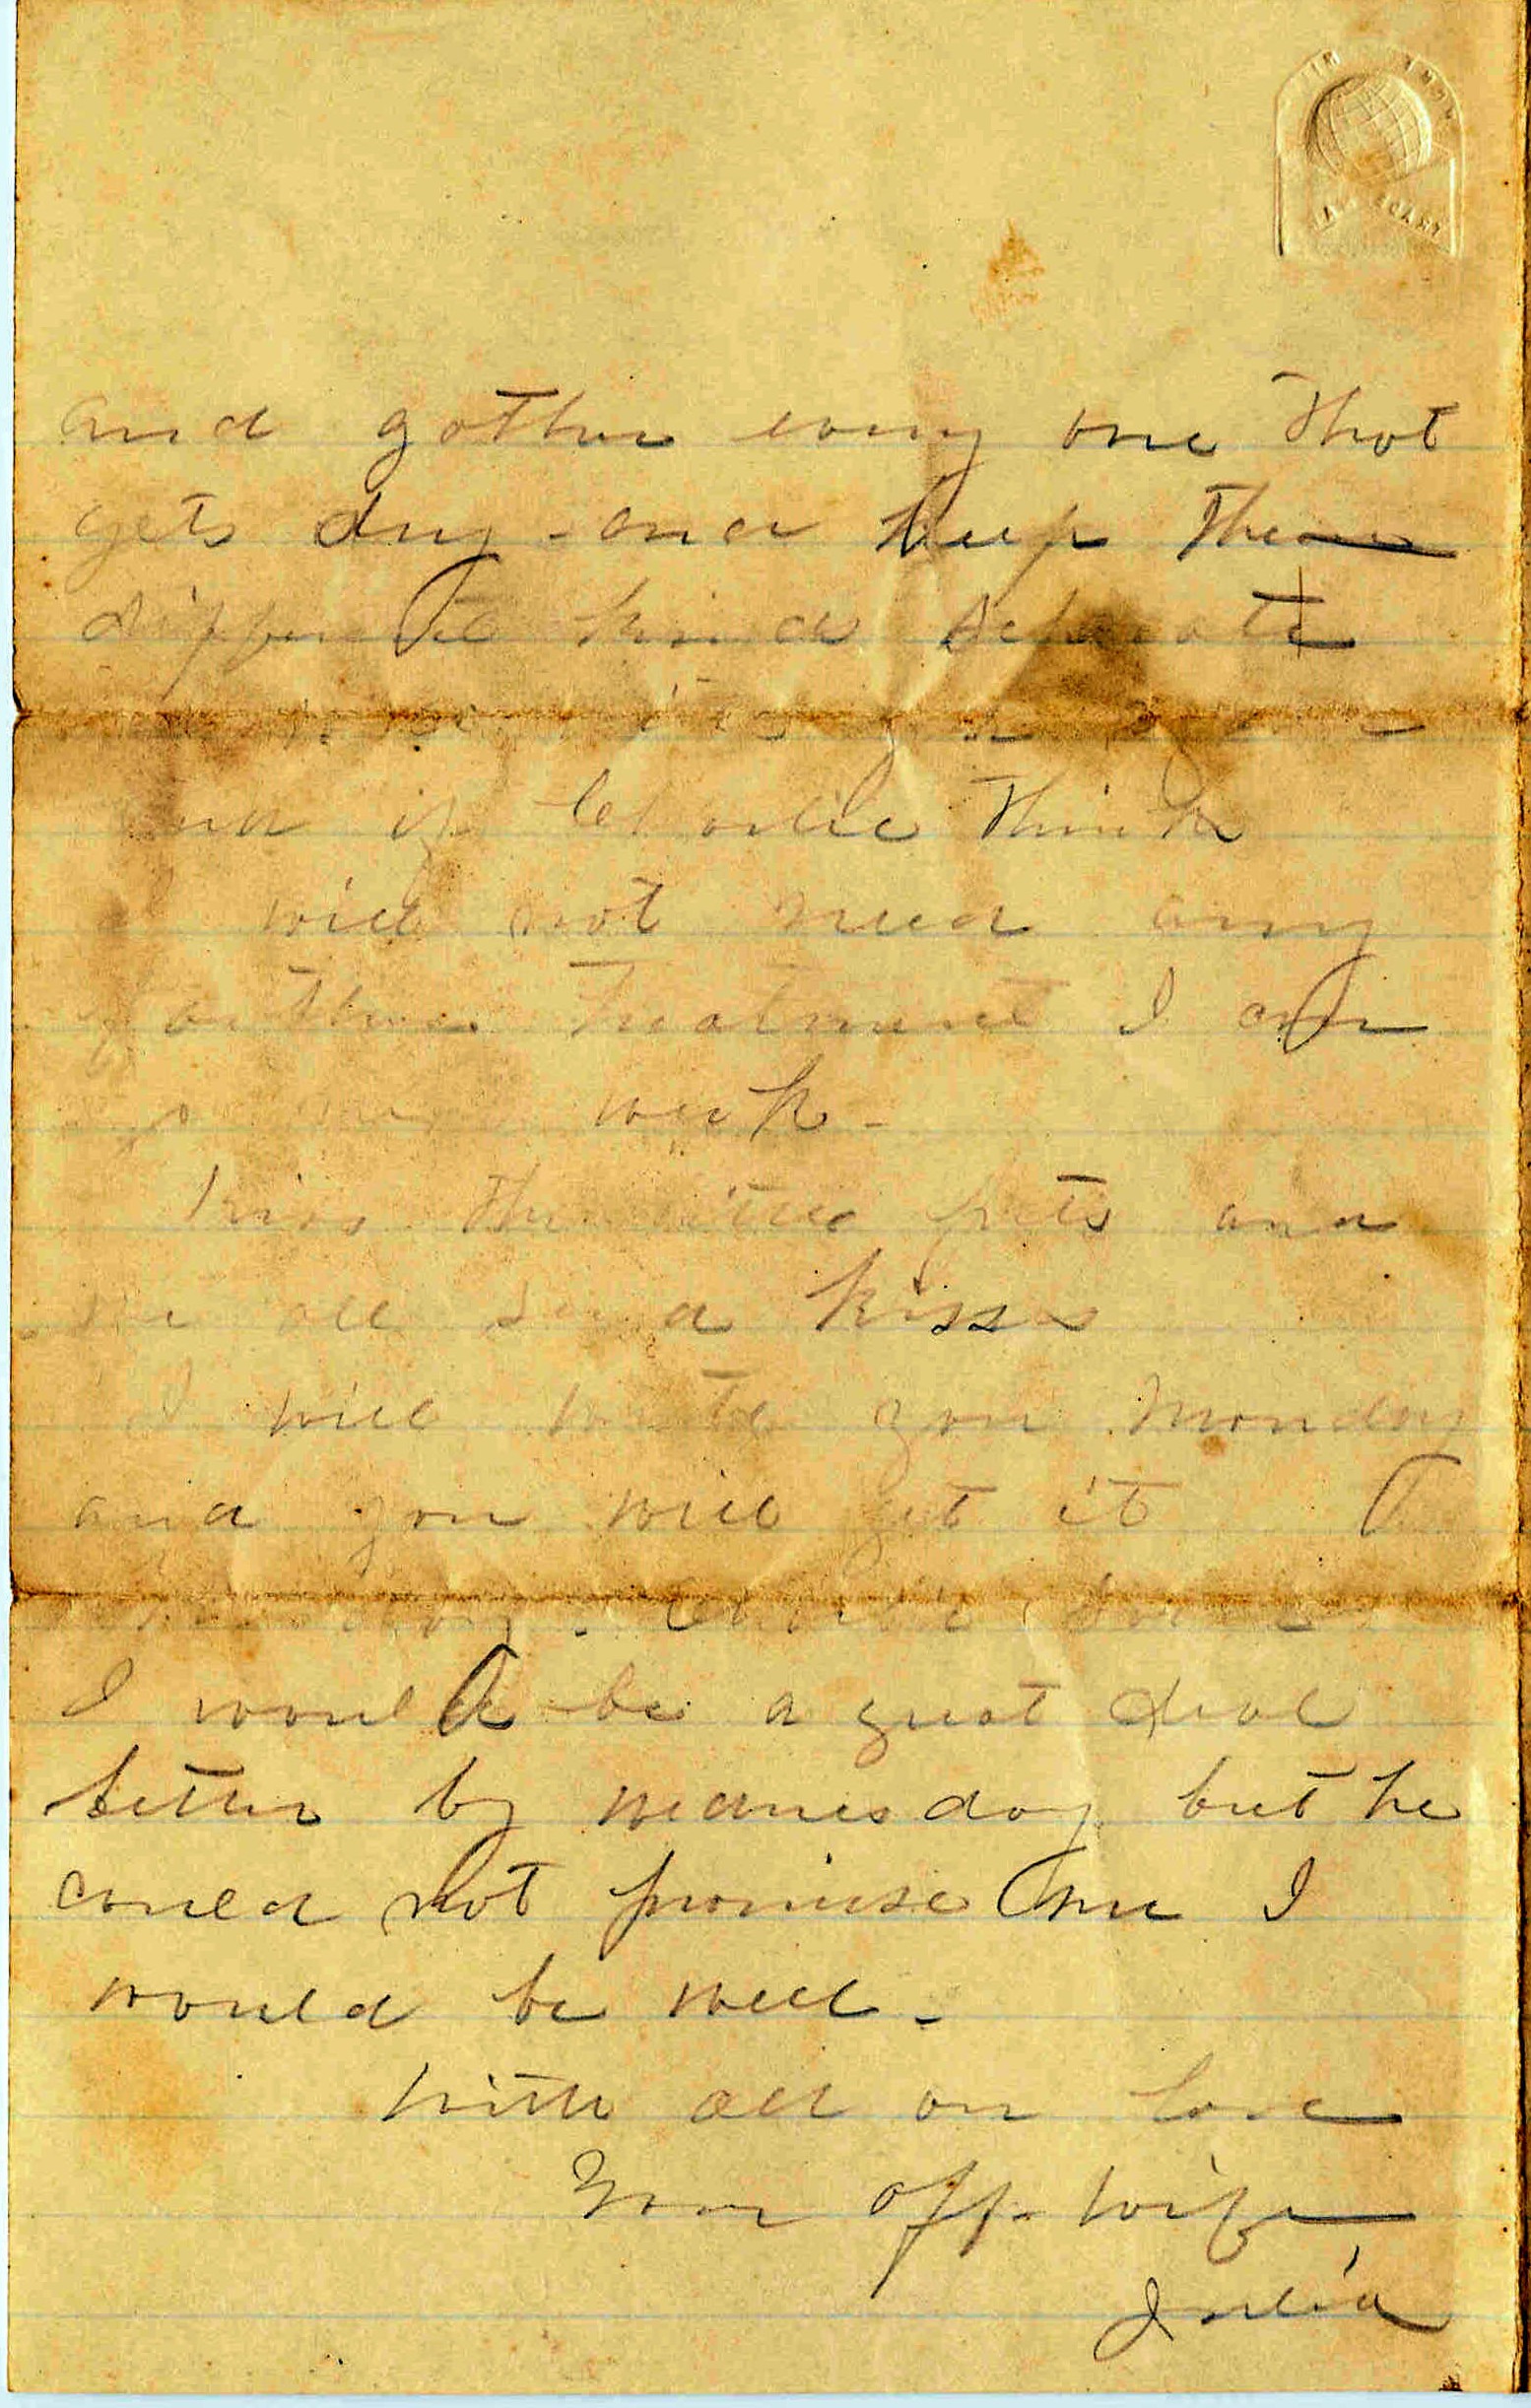 and gather every one that
gets dry - and keep the
different kind separate
and if Charlie thinks
I will not need any
further treatment I can
week -
Kiss the little pets and
we all send kisses
I will write you Monday
and you will get it
I would be a great deal
better by wednesday but he
could not promise me I
would be well -
With all our love
Your aff - wife
Julia
TRADE MARK